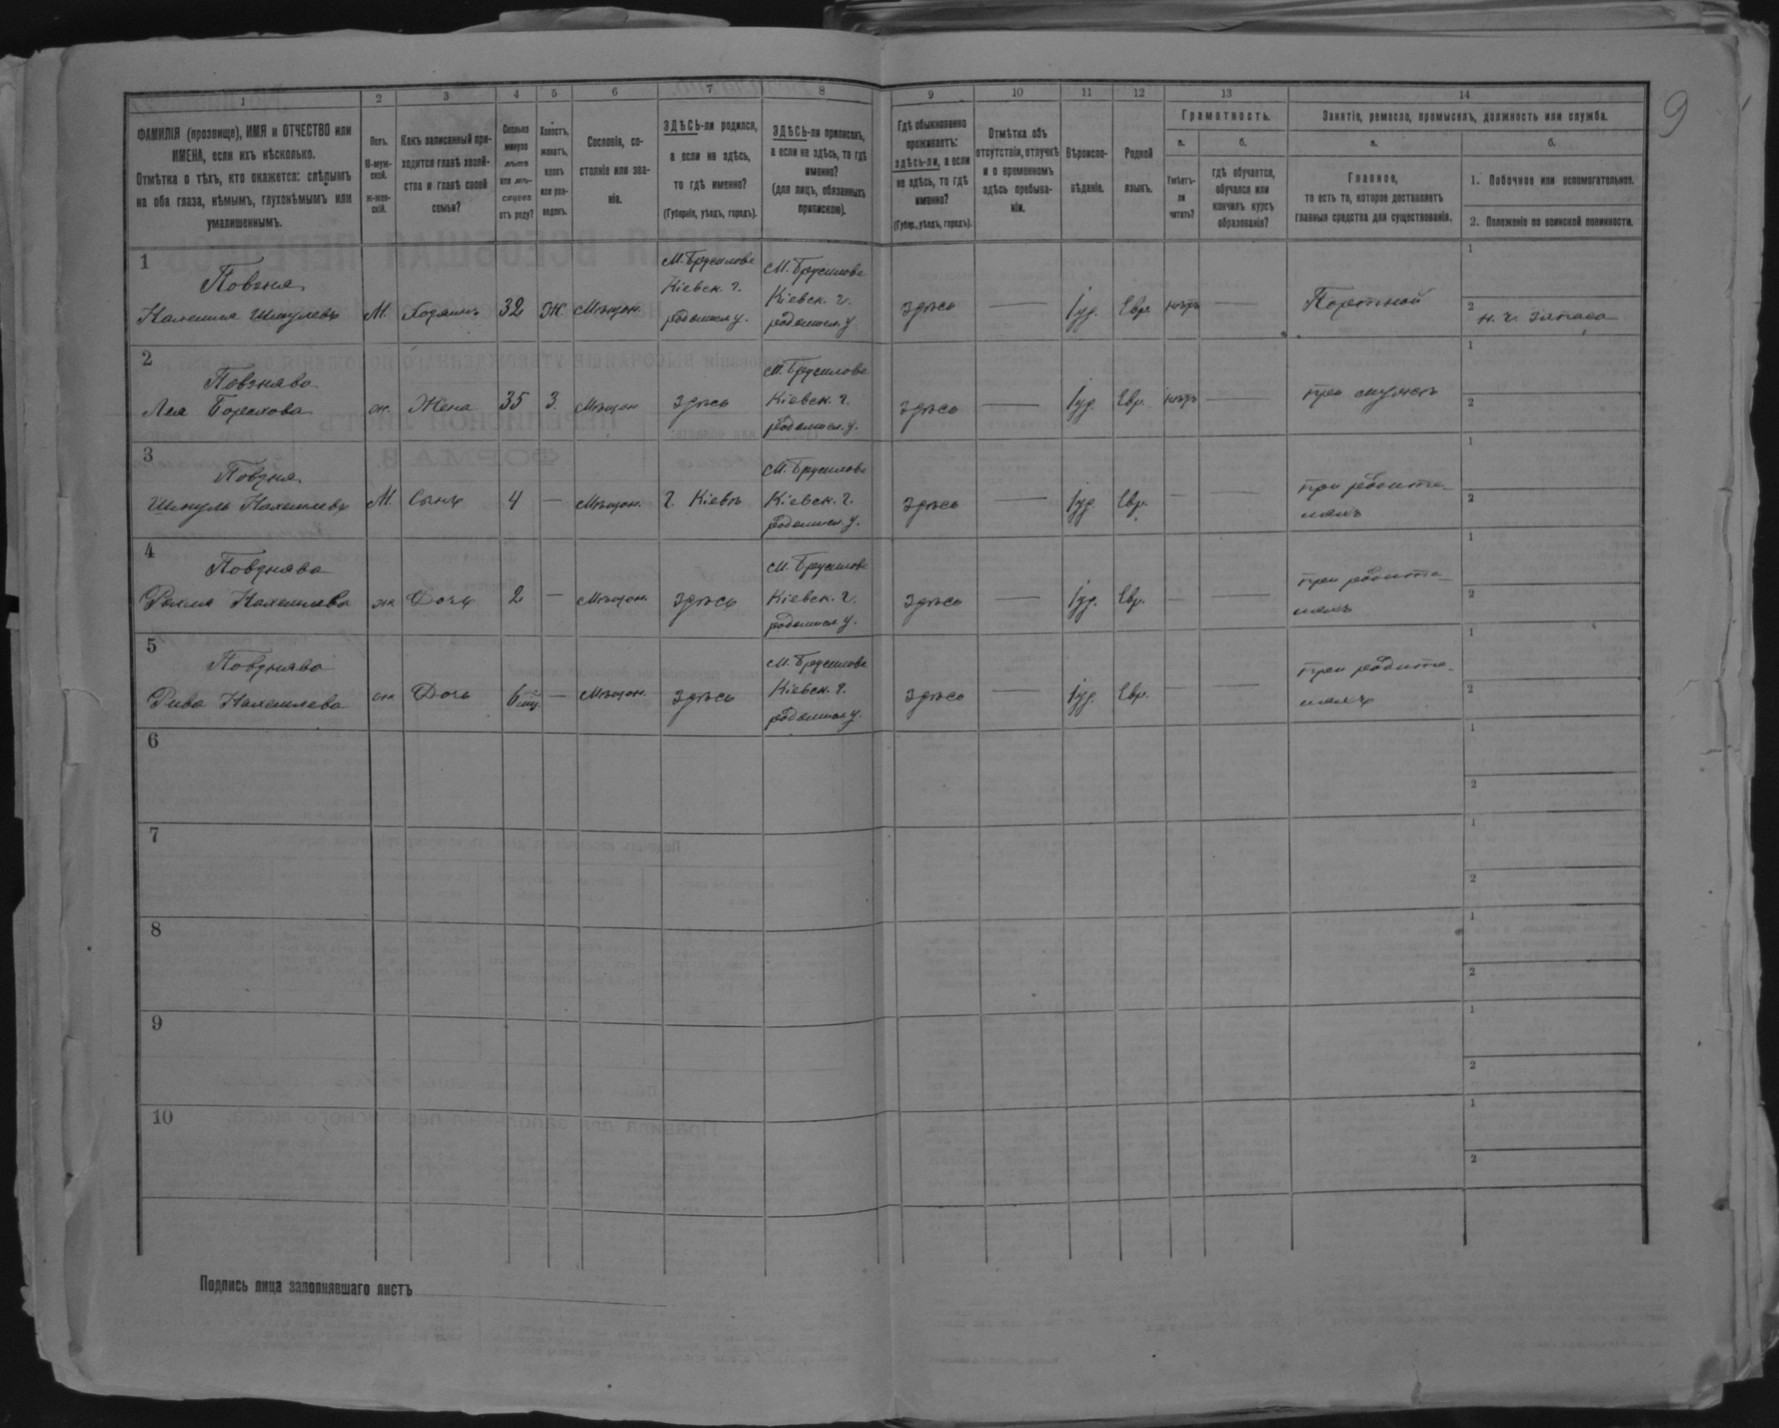 9
1
2
3
4
5
6
7
8
9
10
11
12
13
14
ФАМИЛІЯ (прозвище), ИМЯ и ОТЧЕСТВО или
ИМЕНА, если ихъ нѣсколько.
Отмѣтка о тѣхъ, кто окажется: слѣпымъ
на оба глаза, нѣмымъ, глухонѣмымъ или
умалишеннымъ.
Полъ.
М-муж-
ской.
ж-жен-
скій.
Какъ записанный при-
ходится главѣ хозяй-
ства и главѣ своей
семьи?
Сколько
минуло
лѣтъ
или мѣ-
сяцевъ
отъ роду?
Холостъ,
женатъ,
вдовъ
или раз-
веденъ.
Сословіе, со-
стояніе или зва-
ніе.
ЗДѢСЬ-ли родился,
а если не здѣсь,
то гдѣ именно?
(Губернія, уѣздъ, городъ).
ЗДѢСЬ-ли приписанъ,
а если не здѣсь, то гдѣ
именно?
(для лицъ, обязанныхъ
припискою).
Гдѣ обыкновенно
проживаетъ:
здѣсь-ли, а если
не здѣсь, то гдѣ
именно?
(Губер., уѣздъ, городъ).
Отмѣтка объ
отсутствіи, отлучкѣ
и о временномъ
здѣсь пребыва-
ніи.
Вѣроиспо-
вѣданіе.
Родной
языкъ.
Грамотность.
а.
Умѣетъ-
ли
читать?
б.
гдѣ обучается,
обучался или
кончилъ курсъ
образованія?
Занятіе, ремесло, промыселъ, должность или служба.
а.
Главное,
то есть то, которое доставляетъ
главныя средства для существованія.
б.
1. Побочное или вспомогательное.
2. Положеніе по воинской повинности.
1
Повзня
Шмулевъ
М.
Хозяинъ
32
Ж.
Мѣщан.
М. Брусиловъ
Кіевск. г.
Радомысл. у.
М. Брусиловъ
Кіевск. г.
Радомысл. у.
здѣсь
—
Іуд.
Евр.
нѣтъ
—
Портной
1
2
н. ч. запаса
2
Повзнява
Лея
ж.
Жена
35
З.
Мѣщан.
здѣсь
М. Брусиловъ
Кіевск. г.
Радомысл. у.
здѣсь
—
Іуд.
Евр.
нѣтъ
—
при мужѣ
1
2
3
Повзня
Шмуль
М.
Сынъ
4
—
Мѣщан.
г. Кіевъ
М. Брусиловъ
Кіевск. г.
Радомысл. у.
здѣсь
—
Іуд.
Евр.
—
—
при родите-
ляхъ
1
2
4
Повзнява
ж.
Дочь
2
—
Мѣщан.
здѣсь
М. Брусиловъ
Кіевск. г.
Радомысл. у.
здѣсь
—
Іуд.
Евр.
—
—
при родите-
ляхъ
1
2
5
Повзнява
Рива
ж.
Дочь
6 мц.
—
Мѣщан.
здѣсь
М. Брусиловъ
Кіевск. г.
Радомысл. у.
здѣсь
—
Іуд.
Евр.
—
—
при родите-
ляхъ
1
2
6
1
2
7
1
2
8
1
2
9
1
2
10
1
2
Подпись лица заполнявшаго листъ